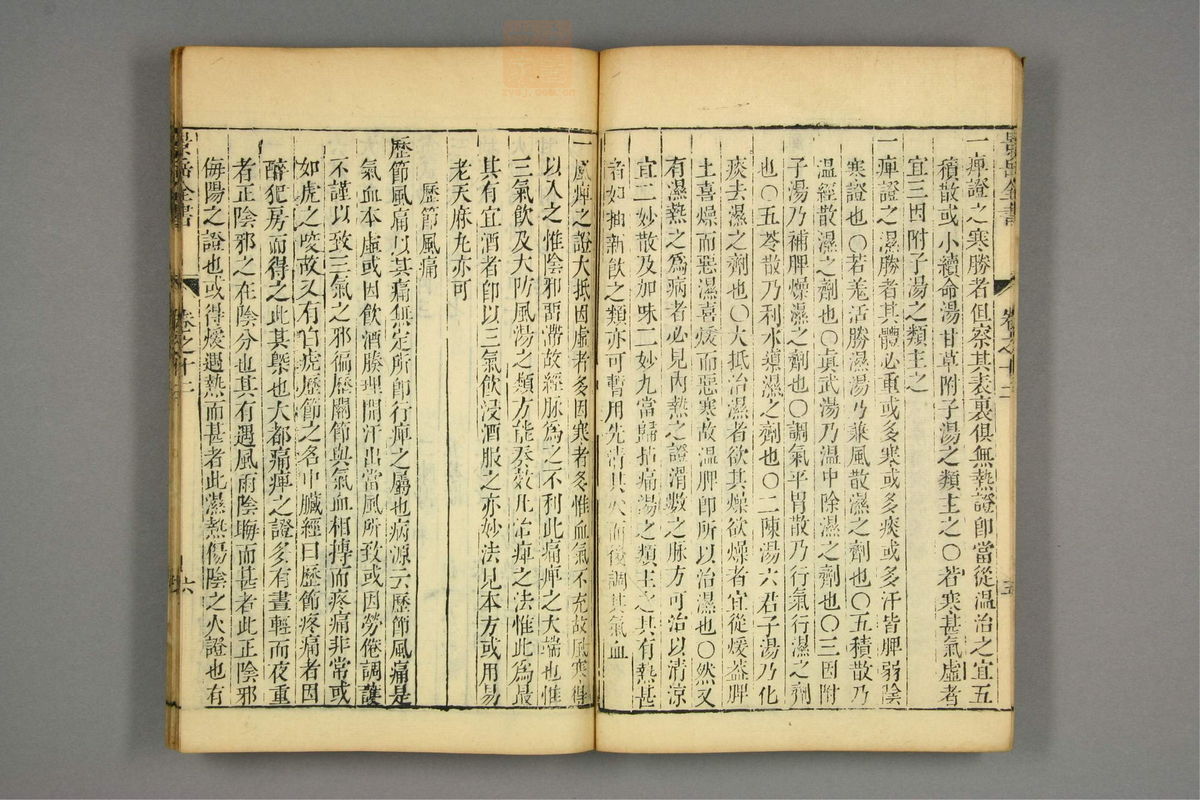 一痺證之寒勝者但察其表裏俱無熱證卽當從溫治之宜五
積散或小續命湯甘草附子湯之類主之〇若寒甚氣虛者
宜三因附子湯之類主之
一痺證之濕勝者其體必重或多寒或多痰或多汗皆脾弱陰
寒證也〇若羗活勝濕湯乃兼風散濕之劑也〇五積散乃
溫經散濕之劑也〇眞武湯乃溫中除濕之劑也〇三因附
子湯乃補脾燥濕之劑也〇調氣平胃散乃行氣行濕之劑
也〇五苓散乃利水導濕之劑也〇二陳湯六君子湯乃化
痰去濕之劑也〇大抵治濕者欲其燥欲燥者宜從煖葢脾
土喜燥而惡濕喜煖而惡寒故溫脾卽所以治濕也〇然又
有濕熱之爲病者必見內熱之證滑數之脉方可治以清涼
宜二妙散及加味二妙丸當歸拈痛湯之類主之其有熱甚
者如抽薪飲之類亦可暫用先清其火而後調其氣血
一風痺之證大抵因虛者多因寒者多惟血氣不充故風寒得
以入之惟陰邪畱滯故經脉爲之不利此痛痺之大端也惟
三氣飲及大防風湯之類方能奏效凡治痺之法惟此爲最
其有宜酒者卽以三氣飲浸酒服之亦妙法見本方或用易
老天麻丸亦可
歷節風痛
歷節風痛以其痛無定所卽行痺之屬也病源云歷節風痛是
氣血本虛或因飲酒腠理開汗出當風所致或因勞倦調護
不謹以致三氣之邪徧歷關節與氣血相搏而疼痛非常或
如虎之咬故又有白虎歷節之名中臟經曰歷節疼痛者因
醉犯房而得之此其槩也大都痛痺之證多有晝輕而夜重
者正陰邪之在陰分也其有遇風雨陰晦而甚者此正陰邪
侮陽之證也或得煖遇熱而甚者此濕熱傷陰之火證也有
景岳全書
卷之十二
六